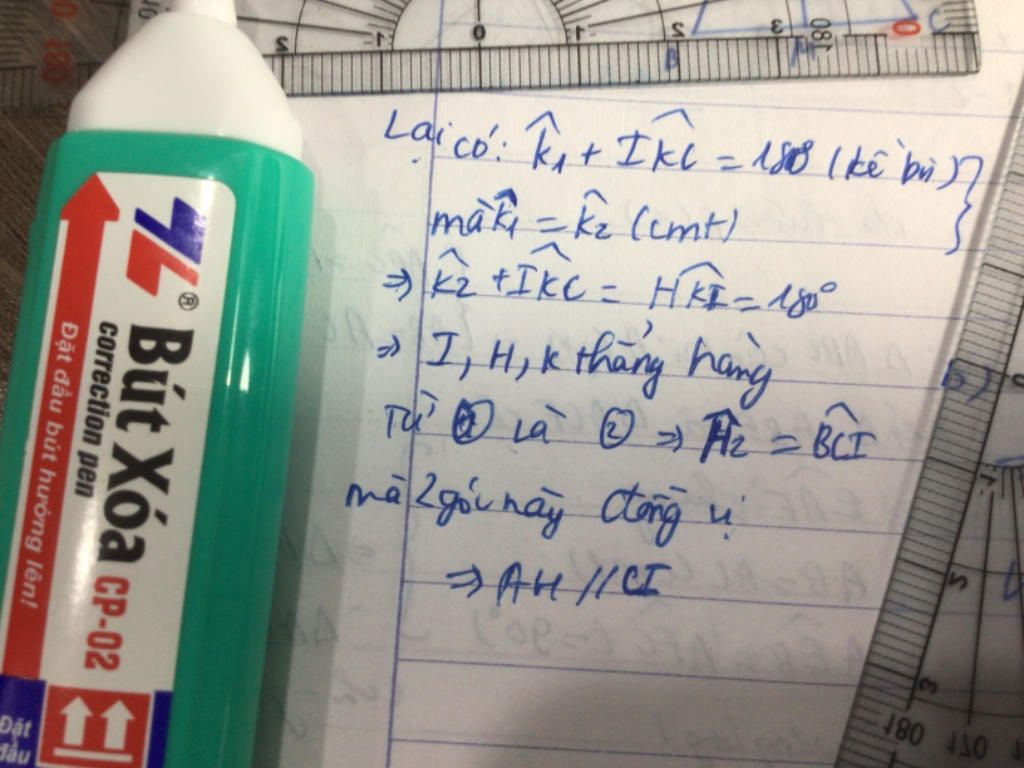 Lại có: K̂1 + IK̂C = 180° (kề bù)
mà K̂1 = K̂2 (cmt)
⇒ K̂2 + IK̂C = HK̂I = 180°
⇒ I, H, K thẳng hàng
Từ ① là ② ⇒ Ĥ2 = BĈI
mà 2 góc này đồng vị
⇒ AH // CI
TL®
Bút Xóa CP-02
correction pen
Đặt đầu bút hướng lên!
Đặt
đầu
2 1 0 1 2 3
180
0
B M C
b)
5
3
180 170